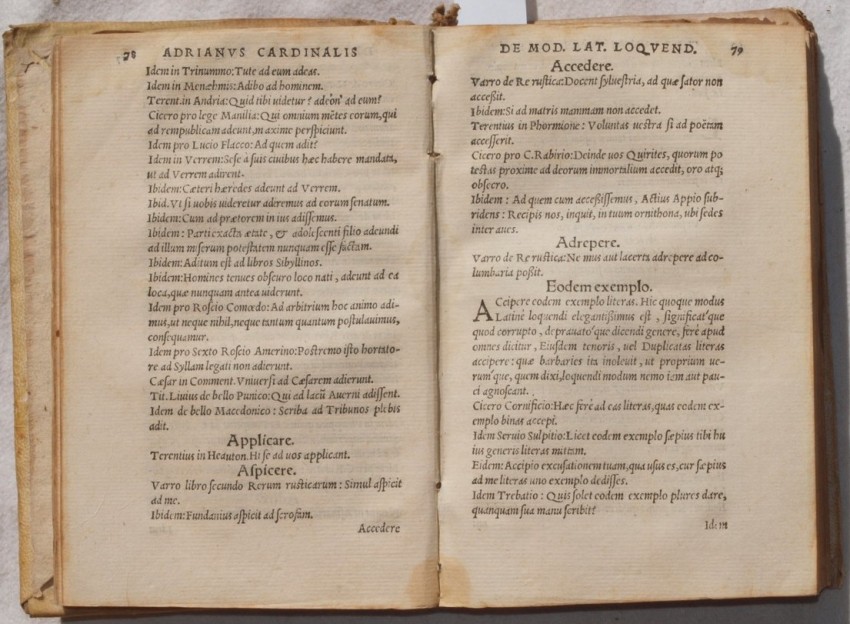 78 ADRIANVS CARDINALIS
Idem in Trinummo: Tute ad eum adeas.
Idem in Menæhmis: Adibo ad hominem.
Terent. in Andria: Quid tibi uidetur? adeòn' ad eum?
Cicero pro lege Manilia: Qui omnium mētes eorum, qui
ad rempublicam adeunt, maxime perspiciunt.
Idem pro Lucio Flacco: Ad quem adit?
Idem in Verrem: Sese à suis ciuibus hæc habere mandata,
ut ad Verrem adirent.
Ibidem: Cæteri hæredes adeunt ad Verrem.
Ibid. Vt si uobis uideretur adremus ad eorum senatum.
Ibidem: Cum ad prætorem in ius adissemus.
Ibidem: Parti exacta ætate, & adolescenti filio adeundi
ad illum miserum potestatem nunquam esse factam.
Ibidem: Aditum est ad libros Sibyllinos.
Ibidem: Homines tenues obscuro loco nati, adeunt ad ea
loca, quæ nunquam antea uiderunt.
Idem pro Roscio Comœdo: Ad arbitrium hoc animo adi-
mus, ut neque nihil, neque tantum quantum postulauimus,
consequamur.
Idem pro Sexto Roscio Amerino: Postremo isto hortato-
re ad Syllam legati non adierunt.
Cæsar in Comment. Vniuersi ad Cæsarem adierunt.
Tit. Liuius de bello Punico: Qui ad lacū Auerni adissent.
Idem de bello Macedonico: Scriba ad Tribunos plebis
adit.
Applicare.
Terentius in Heauton. Hi se ad uos applicant.
Aspicere.
Varro libro secundo Rerum rusticarum: Simul aspicit
ad me.
Ibidem: Fundanius aspicit ad scrofam.
Accedere
DE MOD. LAT. LOQVEND. 79
Accedere.
Varro de Re rustica: Docent syluestria, ad quæ sator non
acceßit.
Ibidem: Si ad matris mammam non accedet.
Terentius in Phormione: Voluntas uestra si ad poëtam
accesserit.
Cicero pro C. Rabirio: Deinde uos Quirites, quorum po
testas proxime ad deorum immortalium accedit, oro atq;
obsecro.
Ibidem: Ad quem cum acceßissemus, Actius Appio sub-
ridens: Recipis nos, inquit, in tuum ornithona, ubi sedes
inter aues.
Adrepere.
Varro de Re rustica: Ne mus aut lacerta adrepere ad co-
lumbaria poßit.
Eodem exemplo.
ACcipere eodem exemplo literas. Hic quoque modus
Latinè loquendi elegantißimus est, significat'que
quod corrupto, deprauato'que dicendi genere, ferè apud
omnes dicitur, Eiusdem tenoris, uel Duplicatas literas
accipere: quæ barbaries ita inoleuit, ut proprium ue-
rum'que, quem dixi, loquendi modum nemo iam aut pau-
ci agnoscant.
Cicero Cornificio: Hæc ferè ad eas literas, quas eodem ex-
emplo binas accepi.
Idem Seruio Sulpitio: Licet eodem exemplo sæpius tibi hu
ius generis literas mittam.
Eidem: Accipio excusationem tuam, qua usus es, cur sæpius
ad me literas uno exemplo dedisses.
Idem Trebatio: Quis solet eodem exemplo plures dare,
quanquam sua manu scribit?
Idem